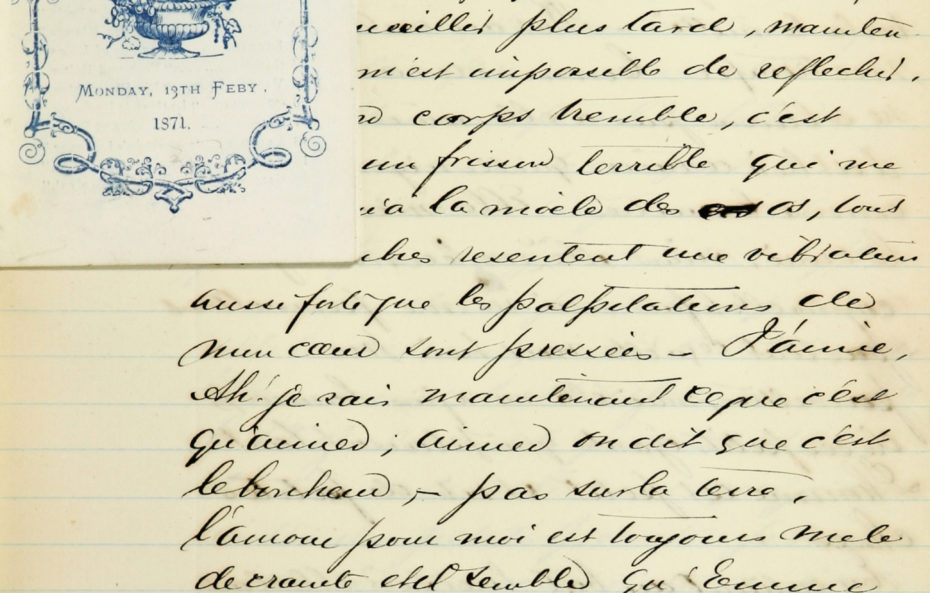 MONDAY, 13TH FEBY.
1871.
plus tard, mainten
m'est impossible de reflechir.
corps tremble, c'est
un frisson terrible qui me
la moële des os, tous
resentent une vibration
aussi forte que les palpitations de
mon cœur sont pressées – J'aime,
Ah! je sais maintenant ce que c'est
qu'aimer; aimer on dit que c'est
le bonheur, – pas sur la terre,
l'amour pour moi est toujours mele
de crainte et il semble qu'Emma